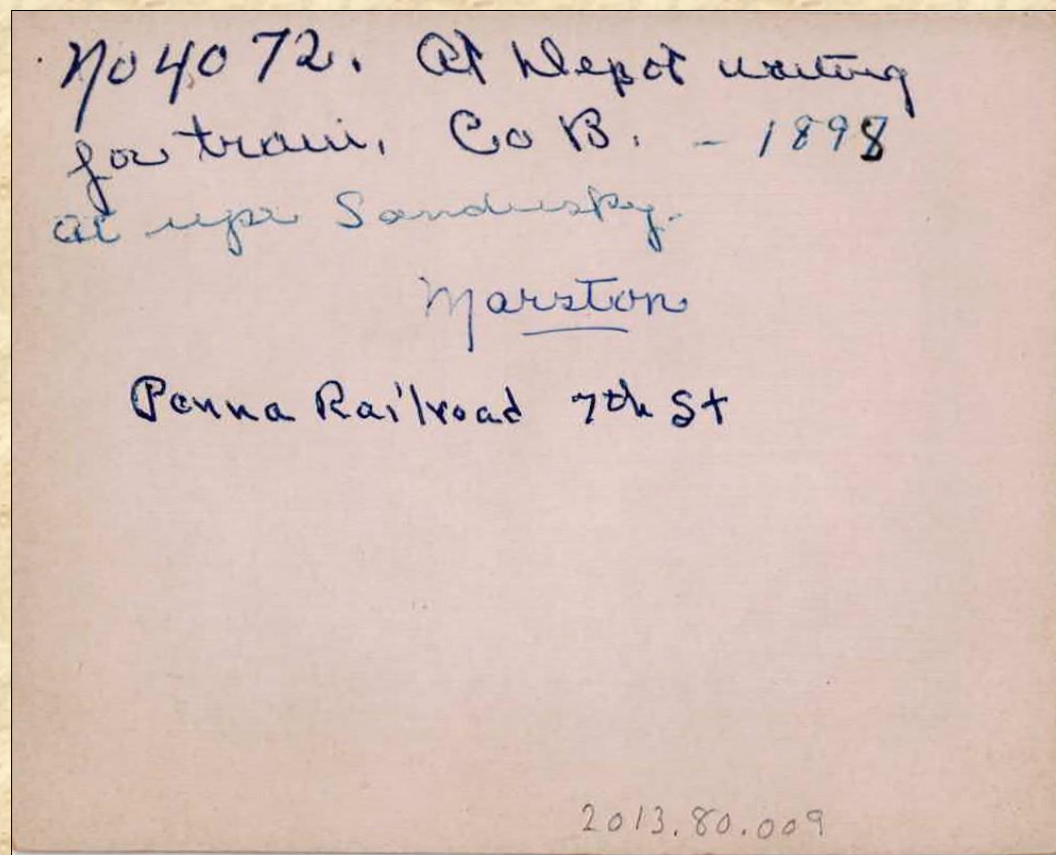 No 4072. At Depot waiting
for train, Co B. - 1898
at upr Sandusky.
Marston
Penna Railroad 7th St
2013.80.009